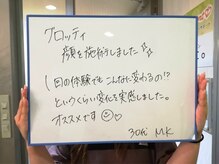 グロッティ
顔を施術しました☆☆
1回の体験でもこんなに変わるの!?
というくらい変化を実感しました。
オススメです☺
30代 M.K